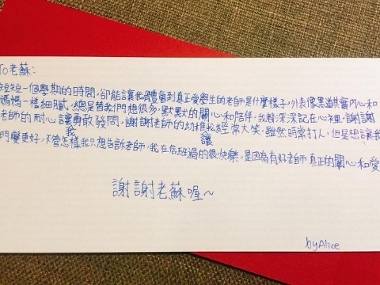 To老蘇:
短短一個學期的時間,卻能讓我體會到真正愛學生的老師是什麼樣子,外表像黑道其實內心和
媽媽一樣細膩,總是替我們想很多,默默的關心和陪伴,我都深深記在心裡,謝謝
老師的耐心讓我勇敢發問,謝謝老師的幼稚讓我經常大笑,雖然時常打人,但是想讓我
們變更好,不管怎樣我只想告訴老師,我在信班過的很快樂,是因為有好老師真正的關心和愛
謝謝老蘇喔~
by Alice